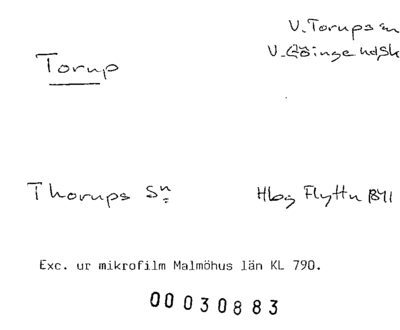 V. Torups sn
V. Göinge hdsk
Torup
Thorups Sn
Hbg Flyttn 1841
Exc. ur mikrofilm Malmöhus län KL 790.
00 030883